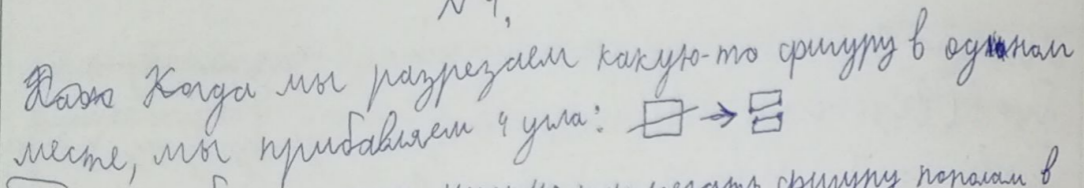 № 1.
Когда мы разрезаем какую-то фигуру в одном
месте, мы прибавляем 4 угла:
фигуру пополам в